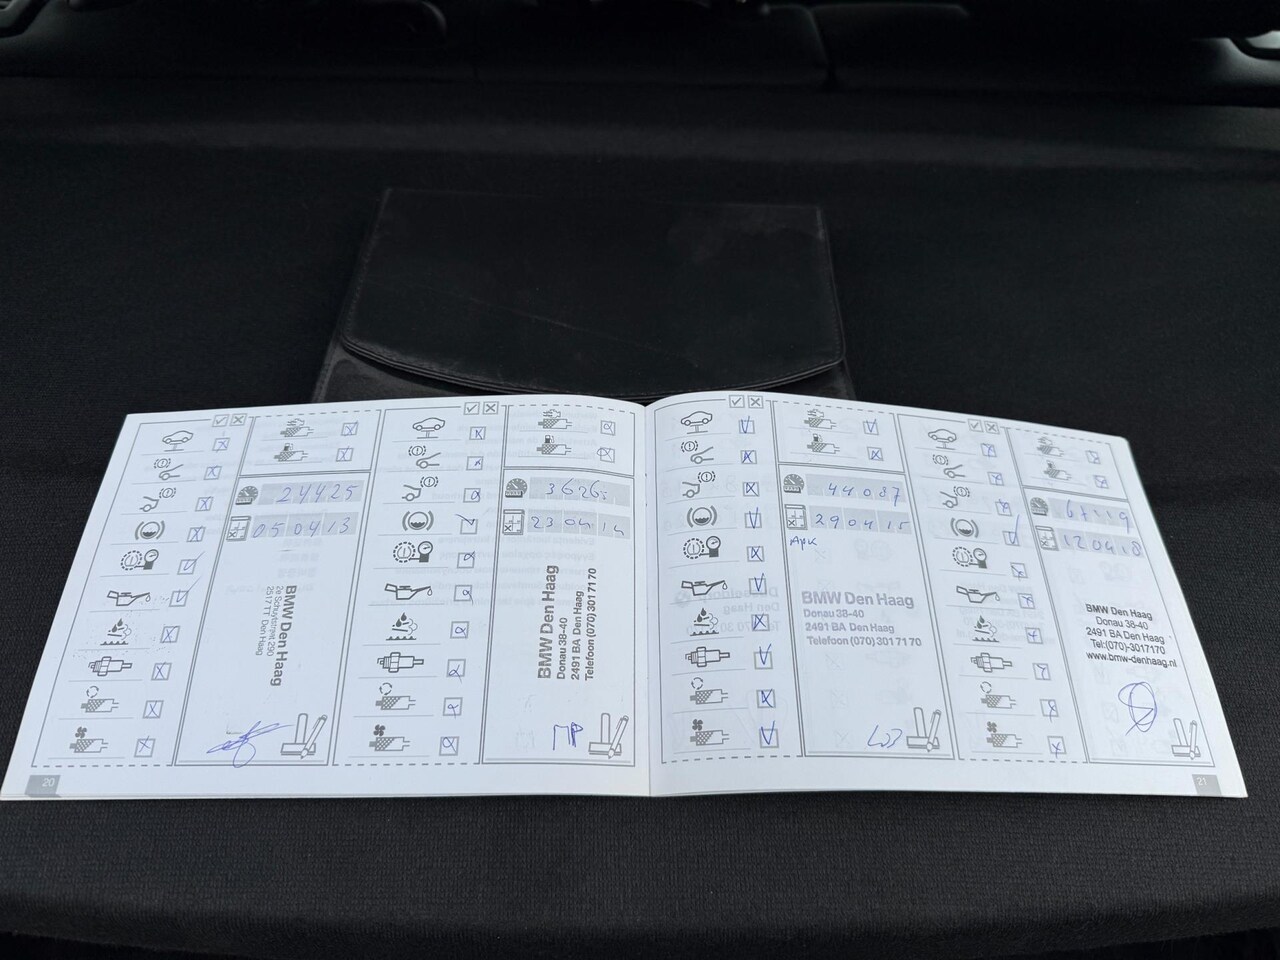 24425
05 04 13
BMW Den Haag
2e Schuytstraat 290
2517 TT Den Haag
20
23 04 14
BMW Den Haag
Donau 38-40
2491 BA Den Haag
Telefoon (070) 301 71 70
44087
29 04 15
APK
BMW Den Haag
Donau 38-40
2491 BA Den Haag
Telefoon (070) 301 71 70
12 04 18
BMW Den Haag
Donau 38-40
2491 BA Den Haag
Tel:(070)-3017170
www.bmw-denhaag.nl
21